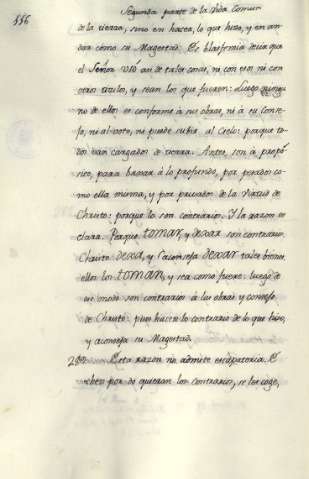 556
Segunda parte de la Vida Comun
de la tierra, sino en hacer, lo que hizo, y en an-
dar como su Magestad. Es blasfemia decir que
el Señor usó asi de tales cosas, ni con esos ni con
otros titulos, y sean los que fueren: Luego ningu-
no de ellos es conforme à sus obras, ni à su conse-
jo, ni al voto, ni puede subir al Cielo: porque to-
dos van cargados de tierra. Antes, son à propó-
sito, para baxar à lo profundo, por pesados co-
mo ella misma, y por privados de la Virtud de
Christo: porque lo son contrarios. Y la razon es
clara. Porque tomar, y dexar son contrarios.
Christo dexa, y aconseja dexar tales bienes,
ellos los toman, y sea como fuere: luego de
ese modo son contrarios à las obras y consejo
de Christo: pues hacen lo contrario de lo que hizo,
y aconseja su Magestad.
Esta razon no admite escapatoria. E
echen por do quieran los contrarios, se les coge,